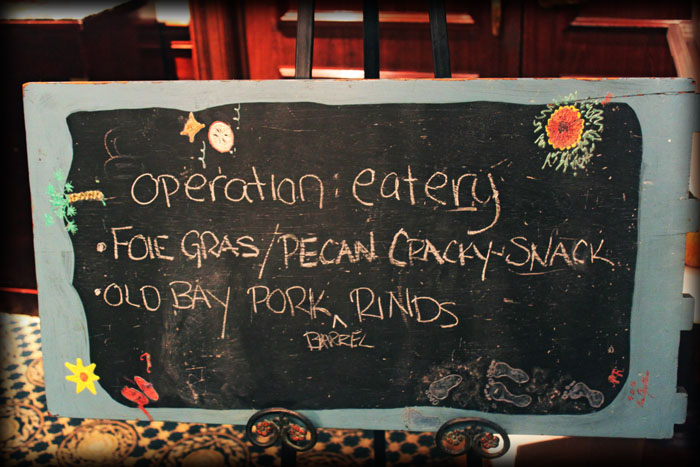 operation: eatery
• FOIE GRAS/PECAN CRACKY-SNACK
• OLD BAY PORK ^ RINDS
BARREL